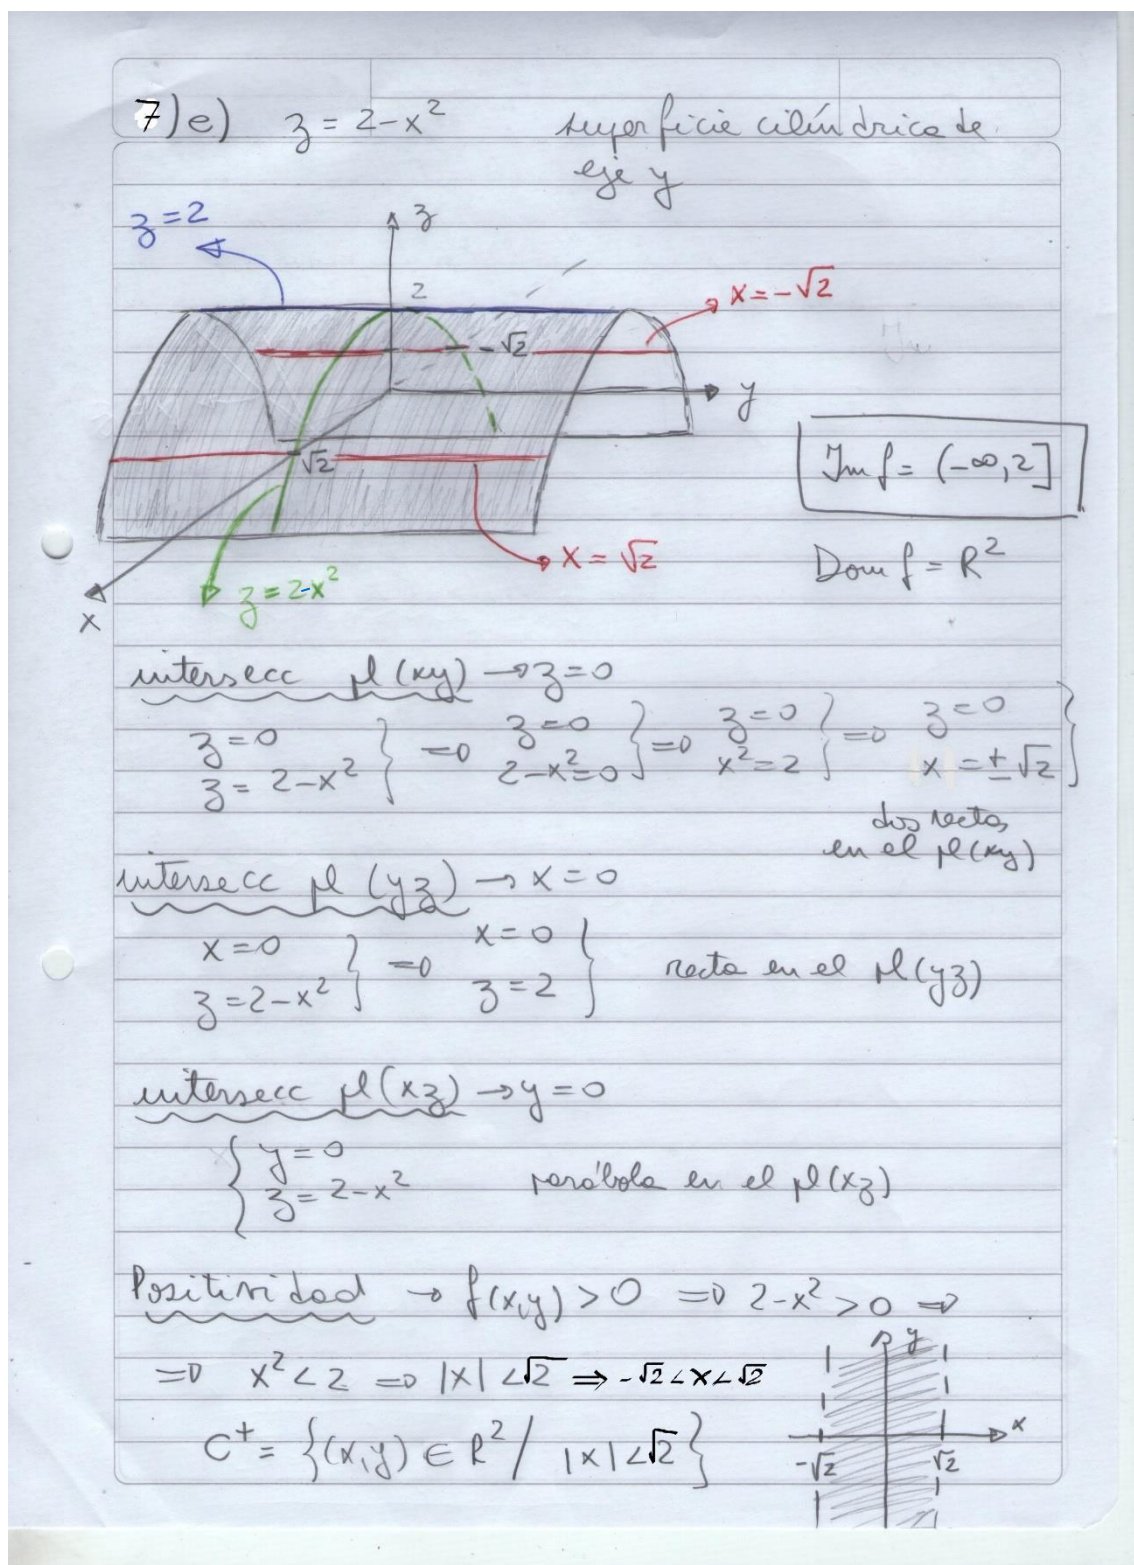 7) e) z = 2-x² superficie cilíndrica de
eje y
z = 2
z
2
x = -√2
-√2
y
√2
Im f = (-∞, 2]
x = √2
Dom f = R²
z = 2-x²
x
intersecc pl (xy) → z = 0
z = 0
z = 2-x² } ⇒ z = 0
2-x² = 0 } ⇒ z = 0
x² = 2 } ⇒ z = 0
x = ± √2 }
dos rectas
en el pl (xy)
intersecc pl (yz) → x = 0
x = 0
z = 2-x² } ⇒ x = 0
z = 2 } recta en el pl (yz)
intersecc pl (xz) → y = 0
{ y = 0
z = 2-x² parábola en el pl (xz)
Positividad → f(x,y) > 0 ⇒ 2-x² > 0 ⇒
⇒ x² < 2 ⇒ |x| < √2 ⇒ -√2 < x < √2
C⁺ = {(x,y) ∈ R² / |x| < √2}
y
x
-√2 √2